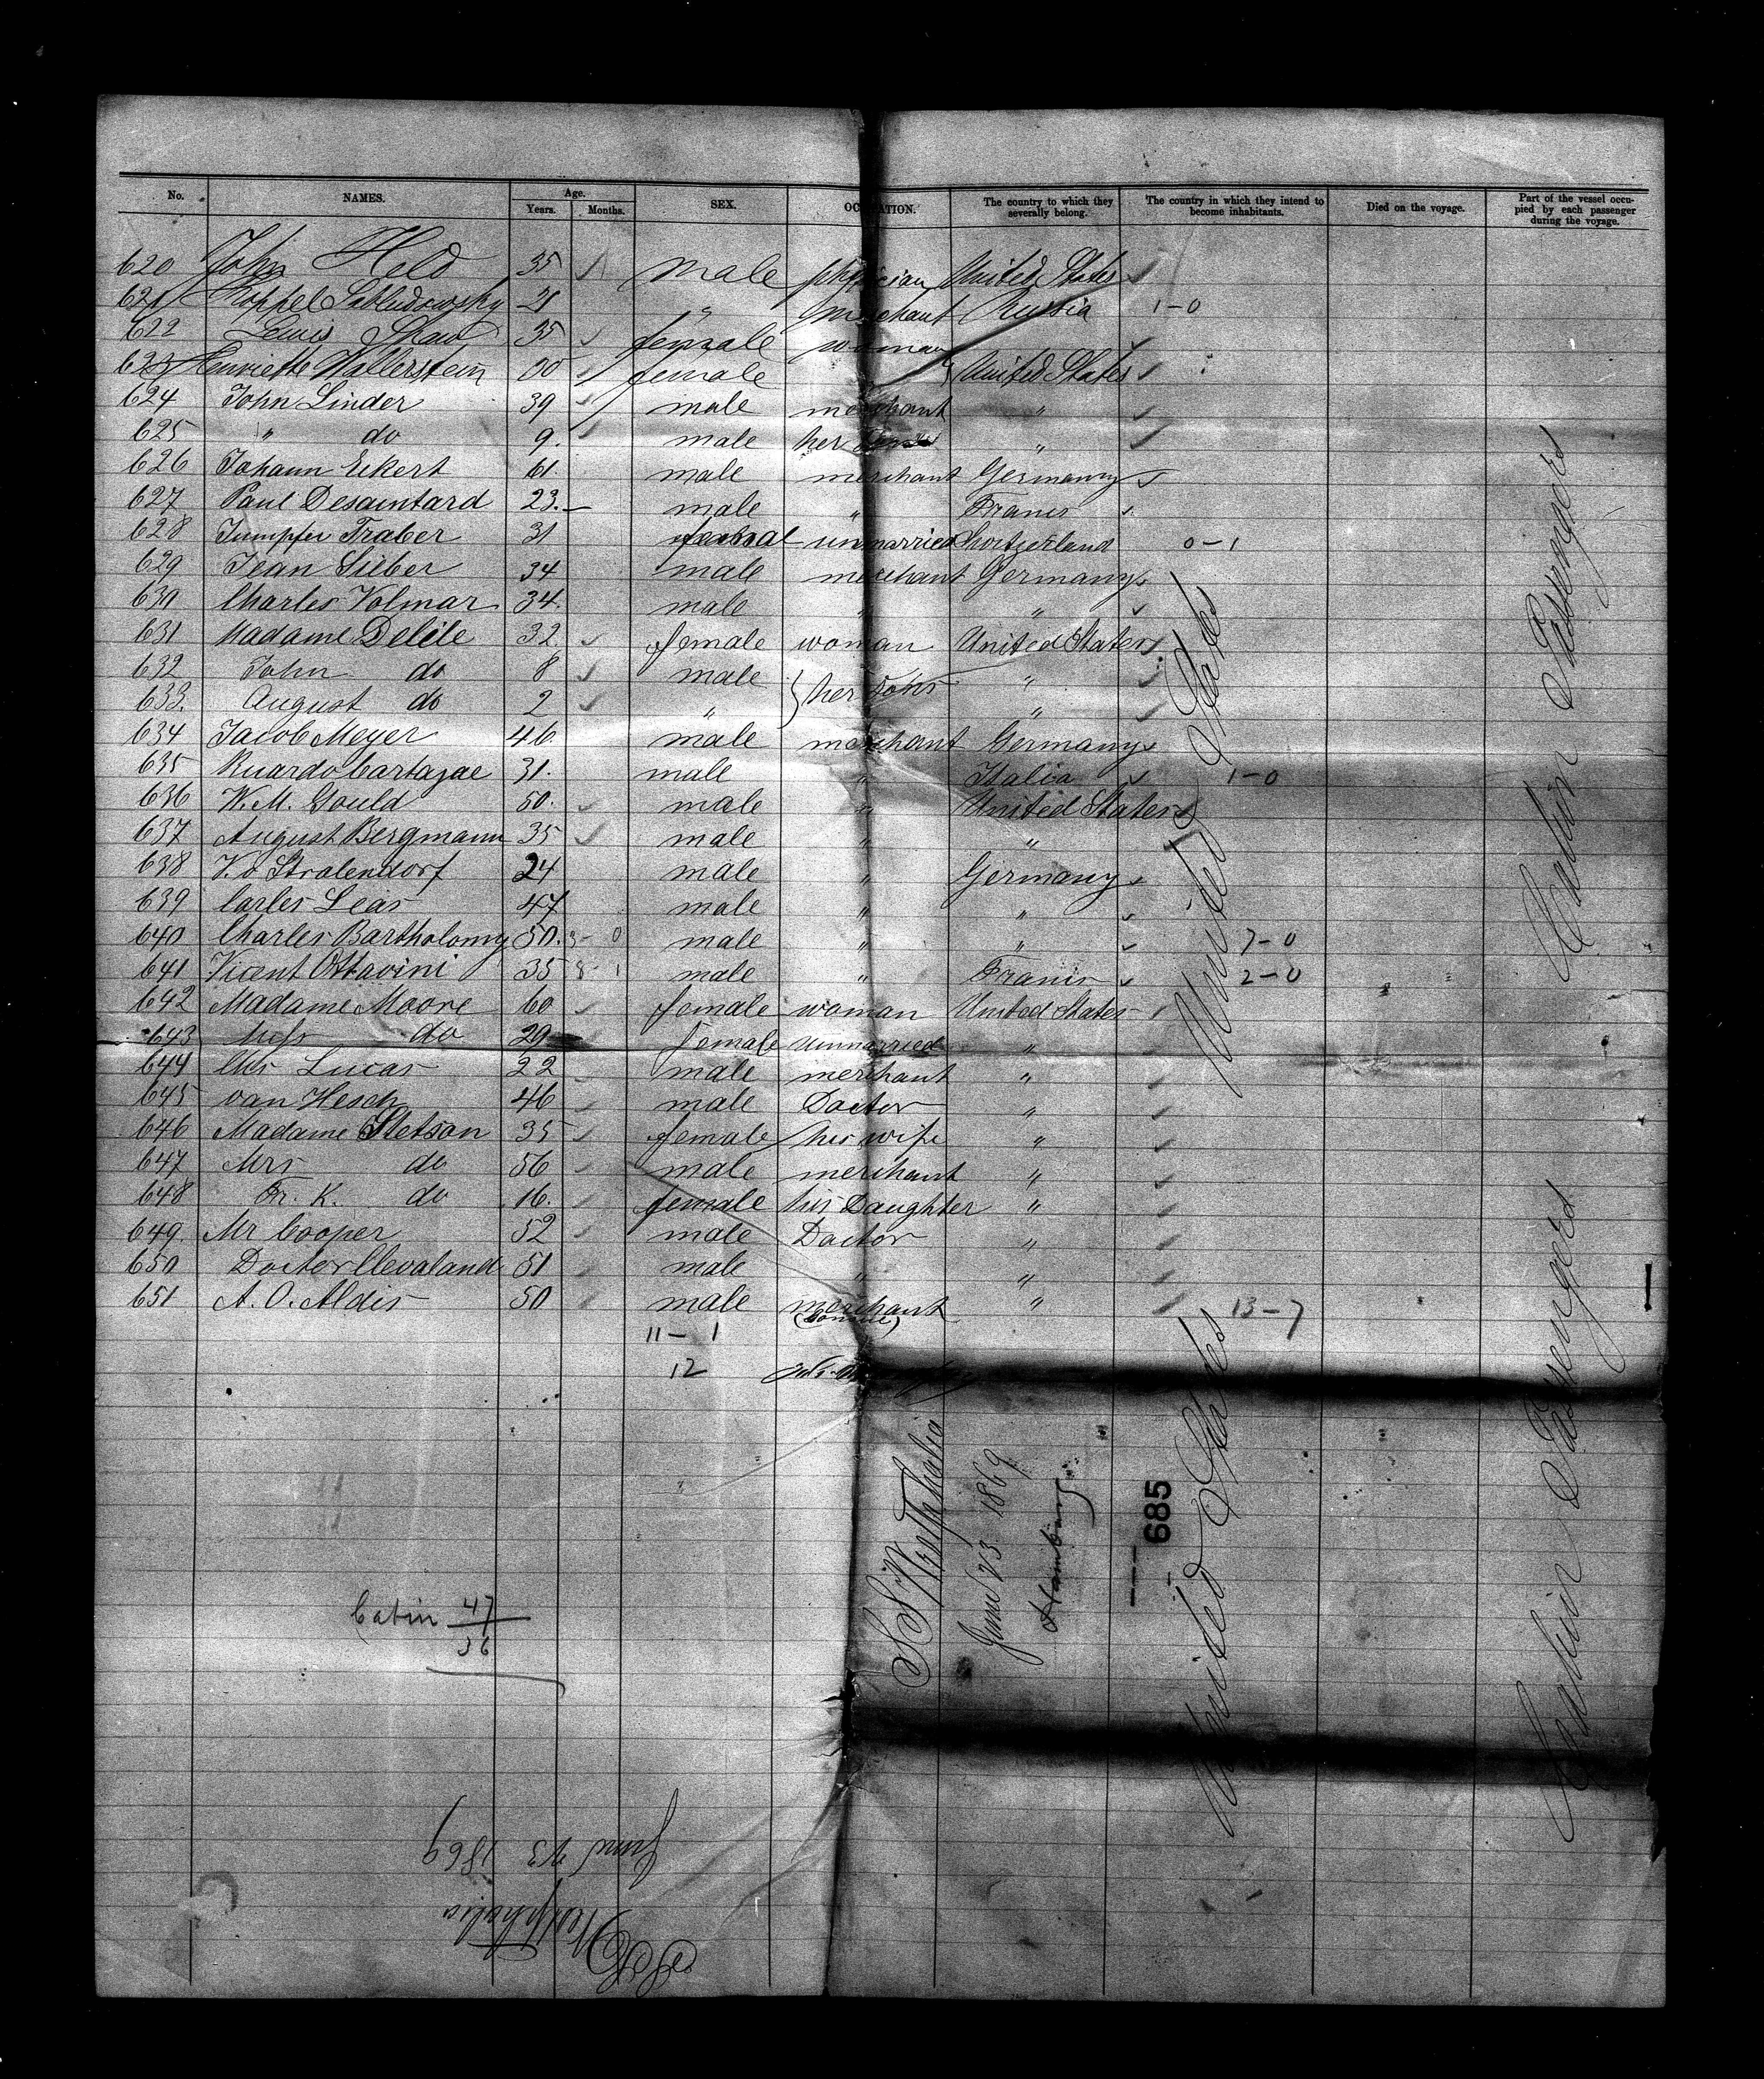 No. NAMES. Age. Years. Months. SEX. OCCUPATION. The country to which they severally belong. The country in which they intend to become inhabitants. Died on the voyage. Part of the vessel occupied by each passenger during the voyage.
620 John Held 35 male physician United States
621 Koppel 21 " merchant Russia 1-0
622 Lewis Shaw 35 female woman
623 Henriette Wallerstein 00 female " United States
624 John Linder 39 male merchant "
625 " do 9. male her "
626 Johann Eckert 61. male merchant Germany
627 Paul Desaintard 23.— male " Francs
628 Jumpfer Traber 31 unmarried Switzerland 0-1
629 Jean Sieber 34 male merchant Germany
630 Charles Volmar 34. male " "
631 Madame Delile 32 female woman United States
632 John do 8 male } her sons "
633. August do 2 " "
634 Jacob Meyer 46. male merchant Germany
635 Ruardo Cartazae 31. male " Italia 1-0
636 W. M. Gould 50. male " United States
637 August Bergmann 35 male " "
638 V. d Stralendorf 24 male " Germany
639 Carles Leas 47 male " "
640 Charles Bartholomy 50. 3-0 male " " 7-0
641 Vicent Ottavini 35 8-1 male " Francs 2-0
642 Madame Moore 60 female woman United States
643 Miss do 29 female unmarried "
644 Chs Lucas 22 male merchant "
645 van Hesch 46 male Doctor "
646 Madame Stetson 35 female his wife "
647 Mrs do 56 male merchant "
648 Fr. K. do 16. female his Daughter "
649. Mr Cooper 52 male Doctor "
650 Doctor Clevaland 51 male " "
651 A. O. Aldis 50 male merchant " 13-7
11-1
12
United States
Cabin Passengers
United States
Cabin Passengers
SS Westphalia
June 23 1869
Hamburg
685
Cabin 47
36
SS Westphalia
June 23 1869